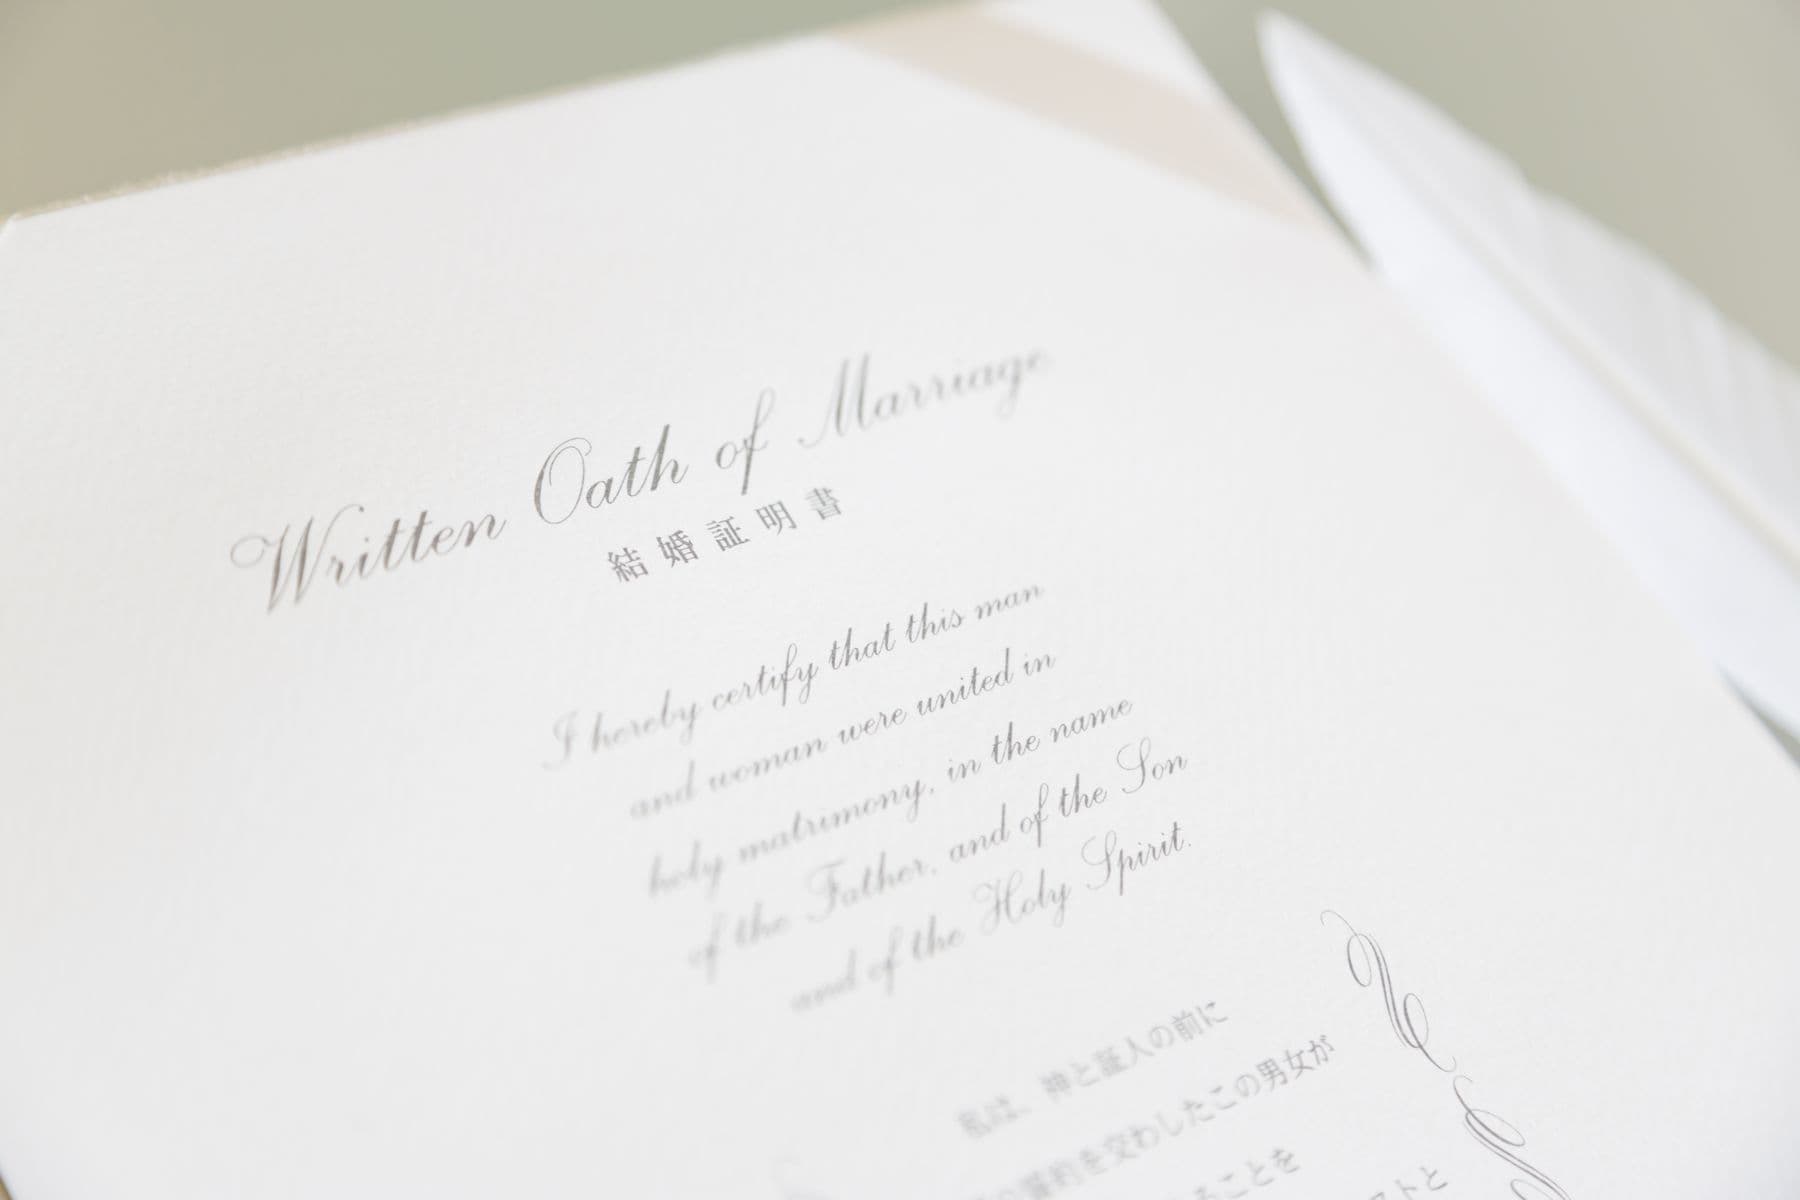 Written Oath of Marriage
結婚証明書
I hereby certify that this man
and woman were united in
holy matrimony, in the name
of the Father, and of the Son
and of the Holy Spirit.
私は、神と証人の前に
誓約を交わしたこの男女が
ことを
ストと